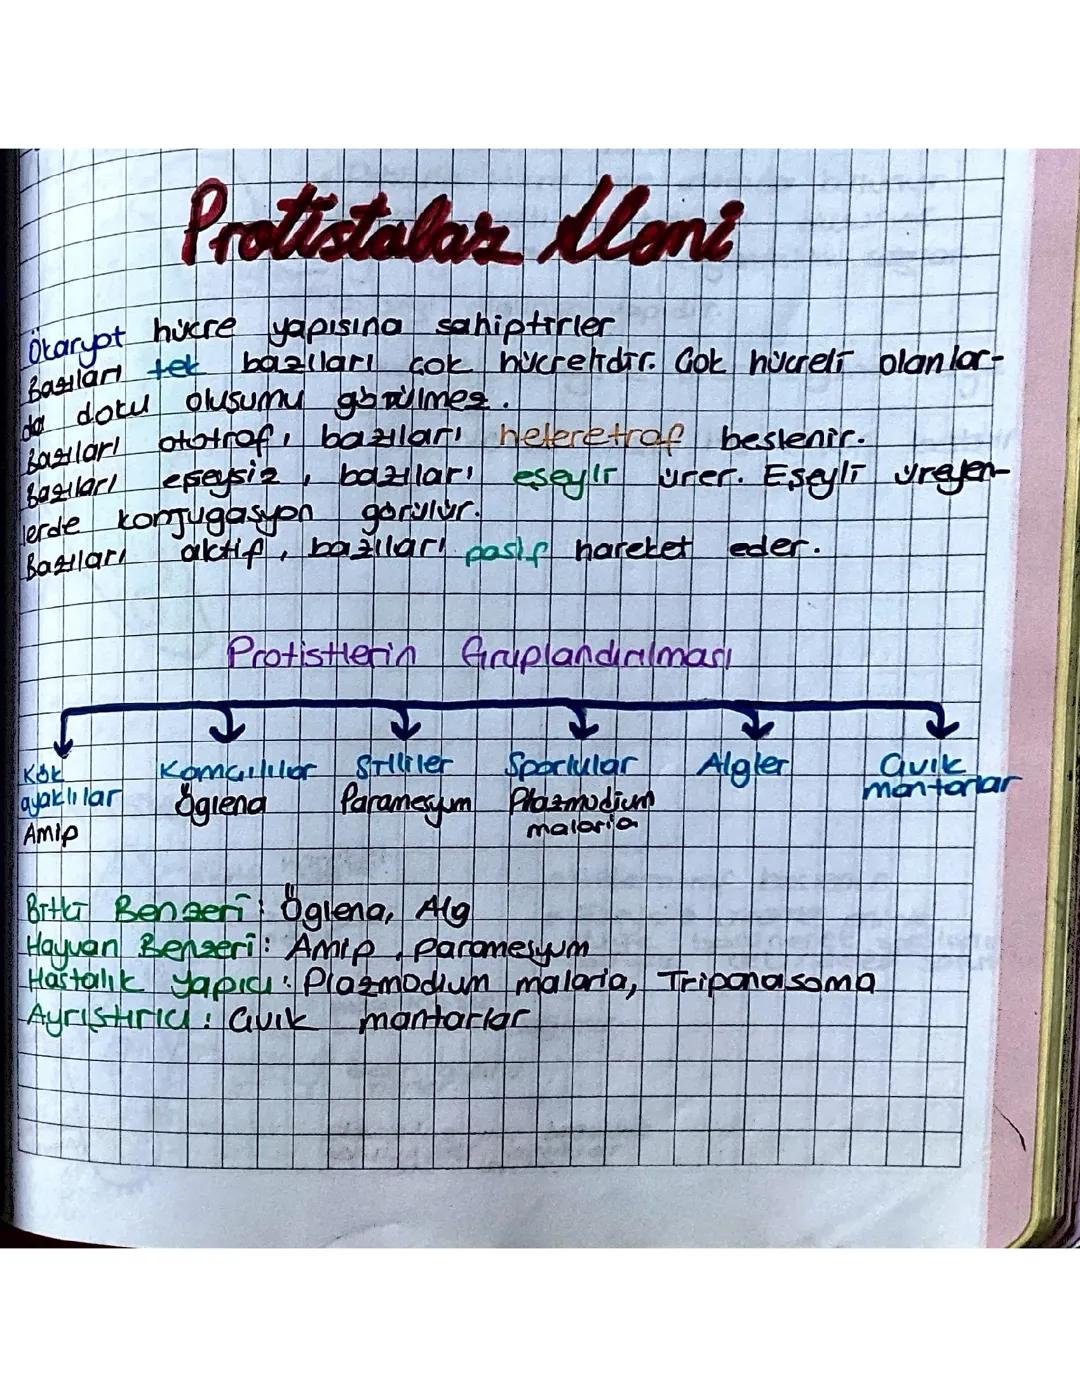 Protistalar Alemi
Ökaryot hücre yapısına sahiptirler
Bazıları tek bazıları çok hücrelidir. Çok hücreli olanlar-
da doku olusumu görülmez.
Bazıları ototrof, bazıları heteretrof beslenir.
Bazıları eşeysiz, bazıları eşeyli ürer. Eşeyli üreyen-
lerde konjugasyon görülür.
Bazıları aktif, bazıları pasif hareket eder.
Protistlerin Gruplandırılması
Kök Kamçılılar Silliler Sporlular Algler Cıvık
ayaklılar Öglena Paramesyum Plazmodium mantarlar
Amip malaria
Bitki Benzeri: Öglena, Alg
Hayvan Benzeri: Amip, paramesyum
Hastalık yapıcı: Plazmodium malaria, Tripanasoma
Ayrıştırıcı: Cıvık mantarlar